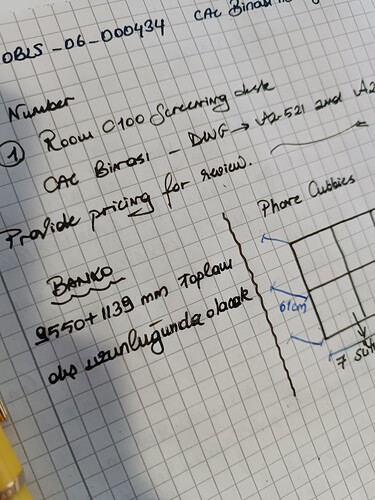 OBLS-06-000434
CAC Binası
Number
① Room C100 Screening desk
CAC Binası - DWG → A2-521 and A2
Provide pricing for review.
BANKO
9550+1139 mm Toplam
dış uzunluğunda olacak
Phone Cubbies
61cm
7